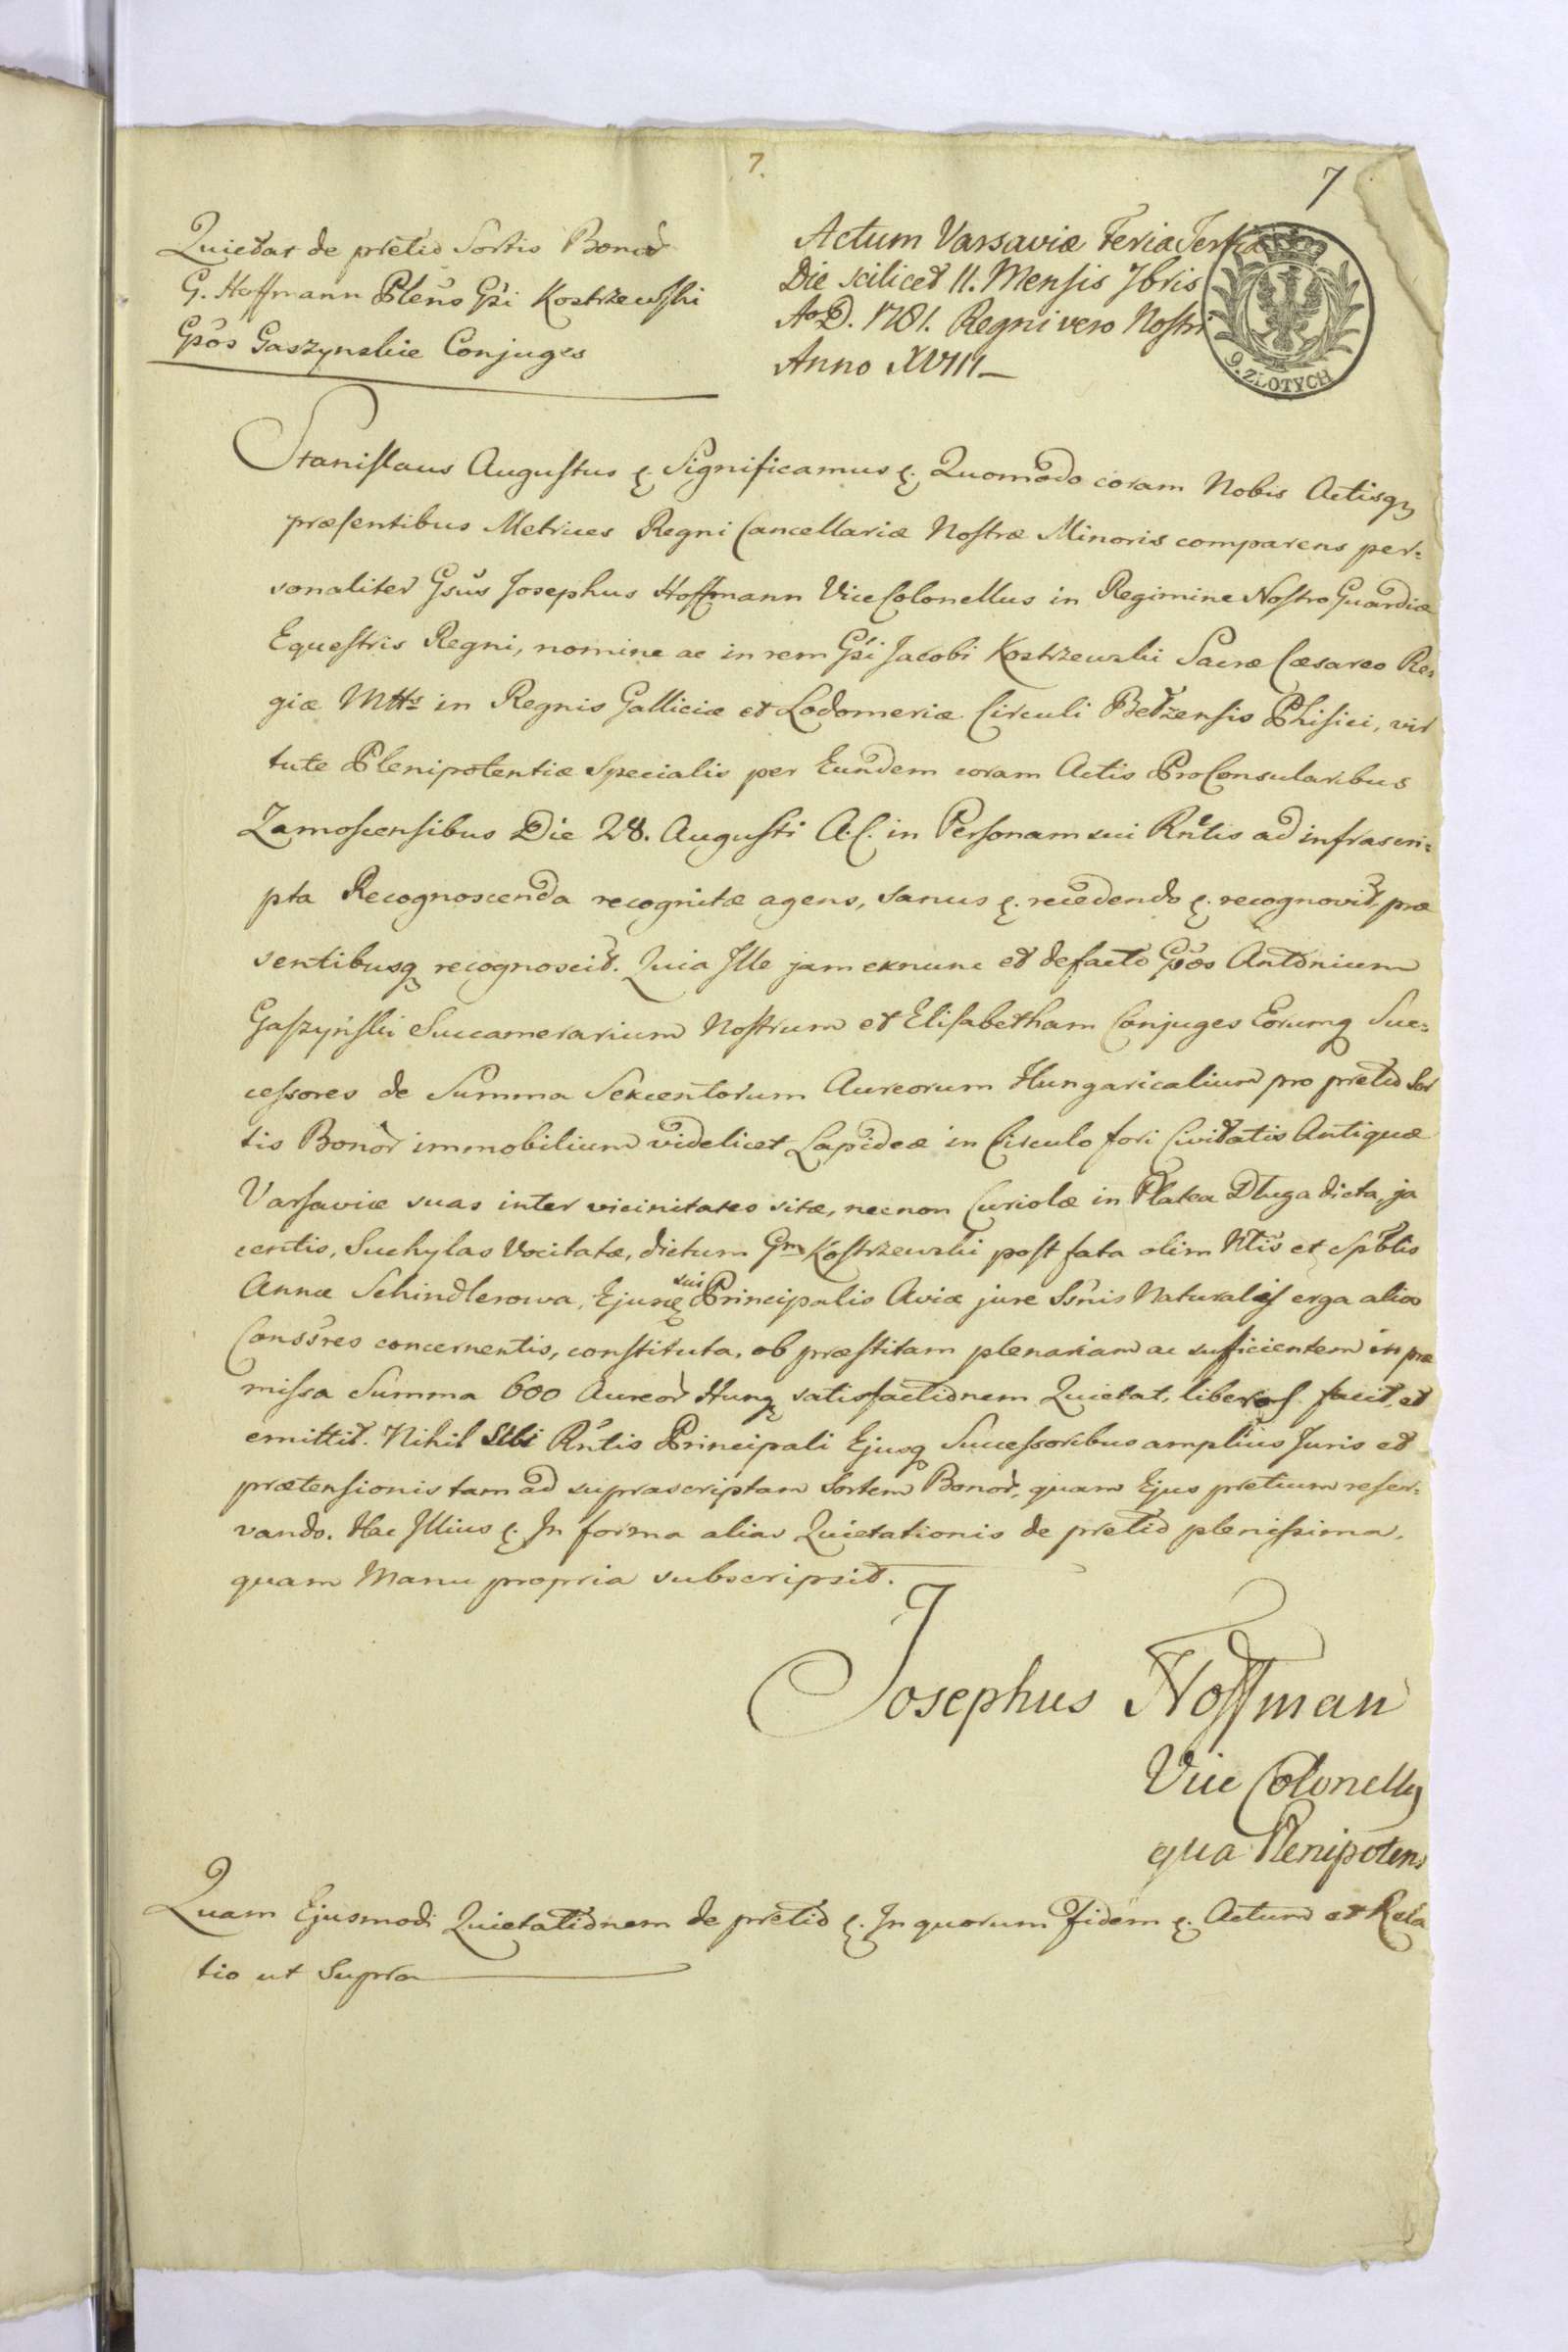 7.
7
Quietat de pretio Sortis Bonor
G. Hoffmann Plens Gsi Kostrzewski
Gsos Gaszynskie Conjuges
Actum Varsaviæ Feria Tertia
Die scilicet 11. Mensis 7bris
Ao D. 1781. Regni vero Nostri
Anno XVIII
9. ZŁOTYCH
Stanislaus Augustus &. Significamus &. Quomodo coram Nobis Actisq
præsentibus Metrices Regni Cancellariæ Nostræ Minoris comparens per=
sonaliter Gsus Josephus Hoffmann ViceColonellus in Regimine Nostro Guardiæ
Equestris Regni, nomine ac in rem Gsi Jacobi Kostrzewski Sacræ Cæsareo Re=
giæ Mttis in Regnis Galliciæ et Lodomeriæ Circuli Bełzensis Phisici, vir
tute Plenipotentiæ Specialis per Eundem coram Actis ProConsularibus
Zamoscensibus Die 28. Augusti A.C. in Personam sui Rntis ad infrascri=
pta Recognoscenda recognitæ agens, sanus &. recedendo &. recognovit, præ
sentibusq recognoscit. Quia Ille jam exnunc et defacto Gsos Antonium
Gaszyński Succamerarium Nostrum et Elisabetham Conjuges Eorumq Suc=
cessores de Summa Sexcentorum Aureorum Hungaricalium pro pretio Sor
tis Bonor immobilium videlicet Lapideæ in Circulo fori Civitatis Antiquæ
Varsaviæ suas inter vicinitates sitæ, necnon Curiolæ in Platea Długa dicta, ja
centis, Suchylas Vocitatæ, dictum Gm Kostrzewski post fata olim Ntis et Spbtis
Annæ Schindlerowa, Ejusq sui Principalis Aviæ jure Ssnis Naturalis erga alios
Conssres concernentis, constituta, ob præstitam plenariam ac sufficientem in præ
missa Summa 600 Aureor Hung satisfactionem Quietat, liberos facit, et
emittit. Nihil Sibi Rntis Principali Ejusq Successoribus amplius Juris et
prætensionis tam ad suprascriptam Sortem Bonor, quam Ejus pretium reser=
vando. Hac Illius &. In forma alias Quietationis de pretio plenissima,
quam Manu propria subscripsit.
Josephus Hoffman
Vice Colonellus
qua Plenipotens
Quam Ejusmodi Quietationem de pretio &. In quorum Fidem &. Actum et Rela
tio ut Supra